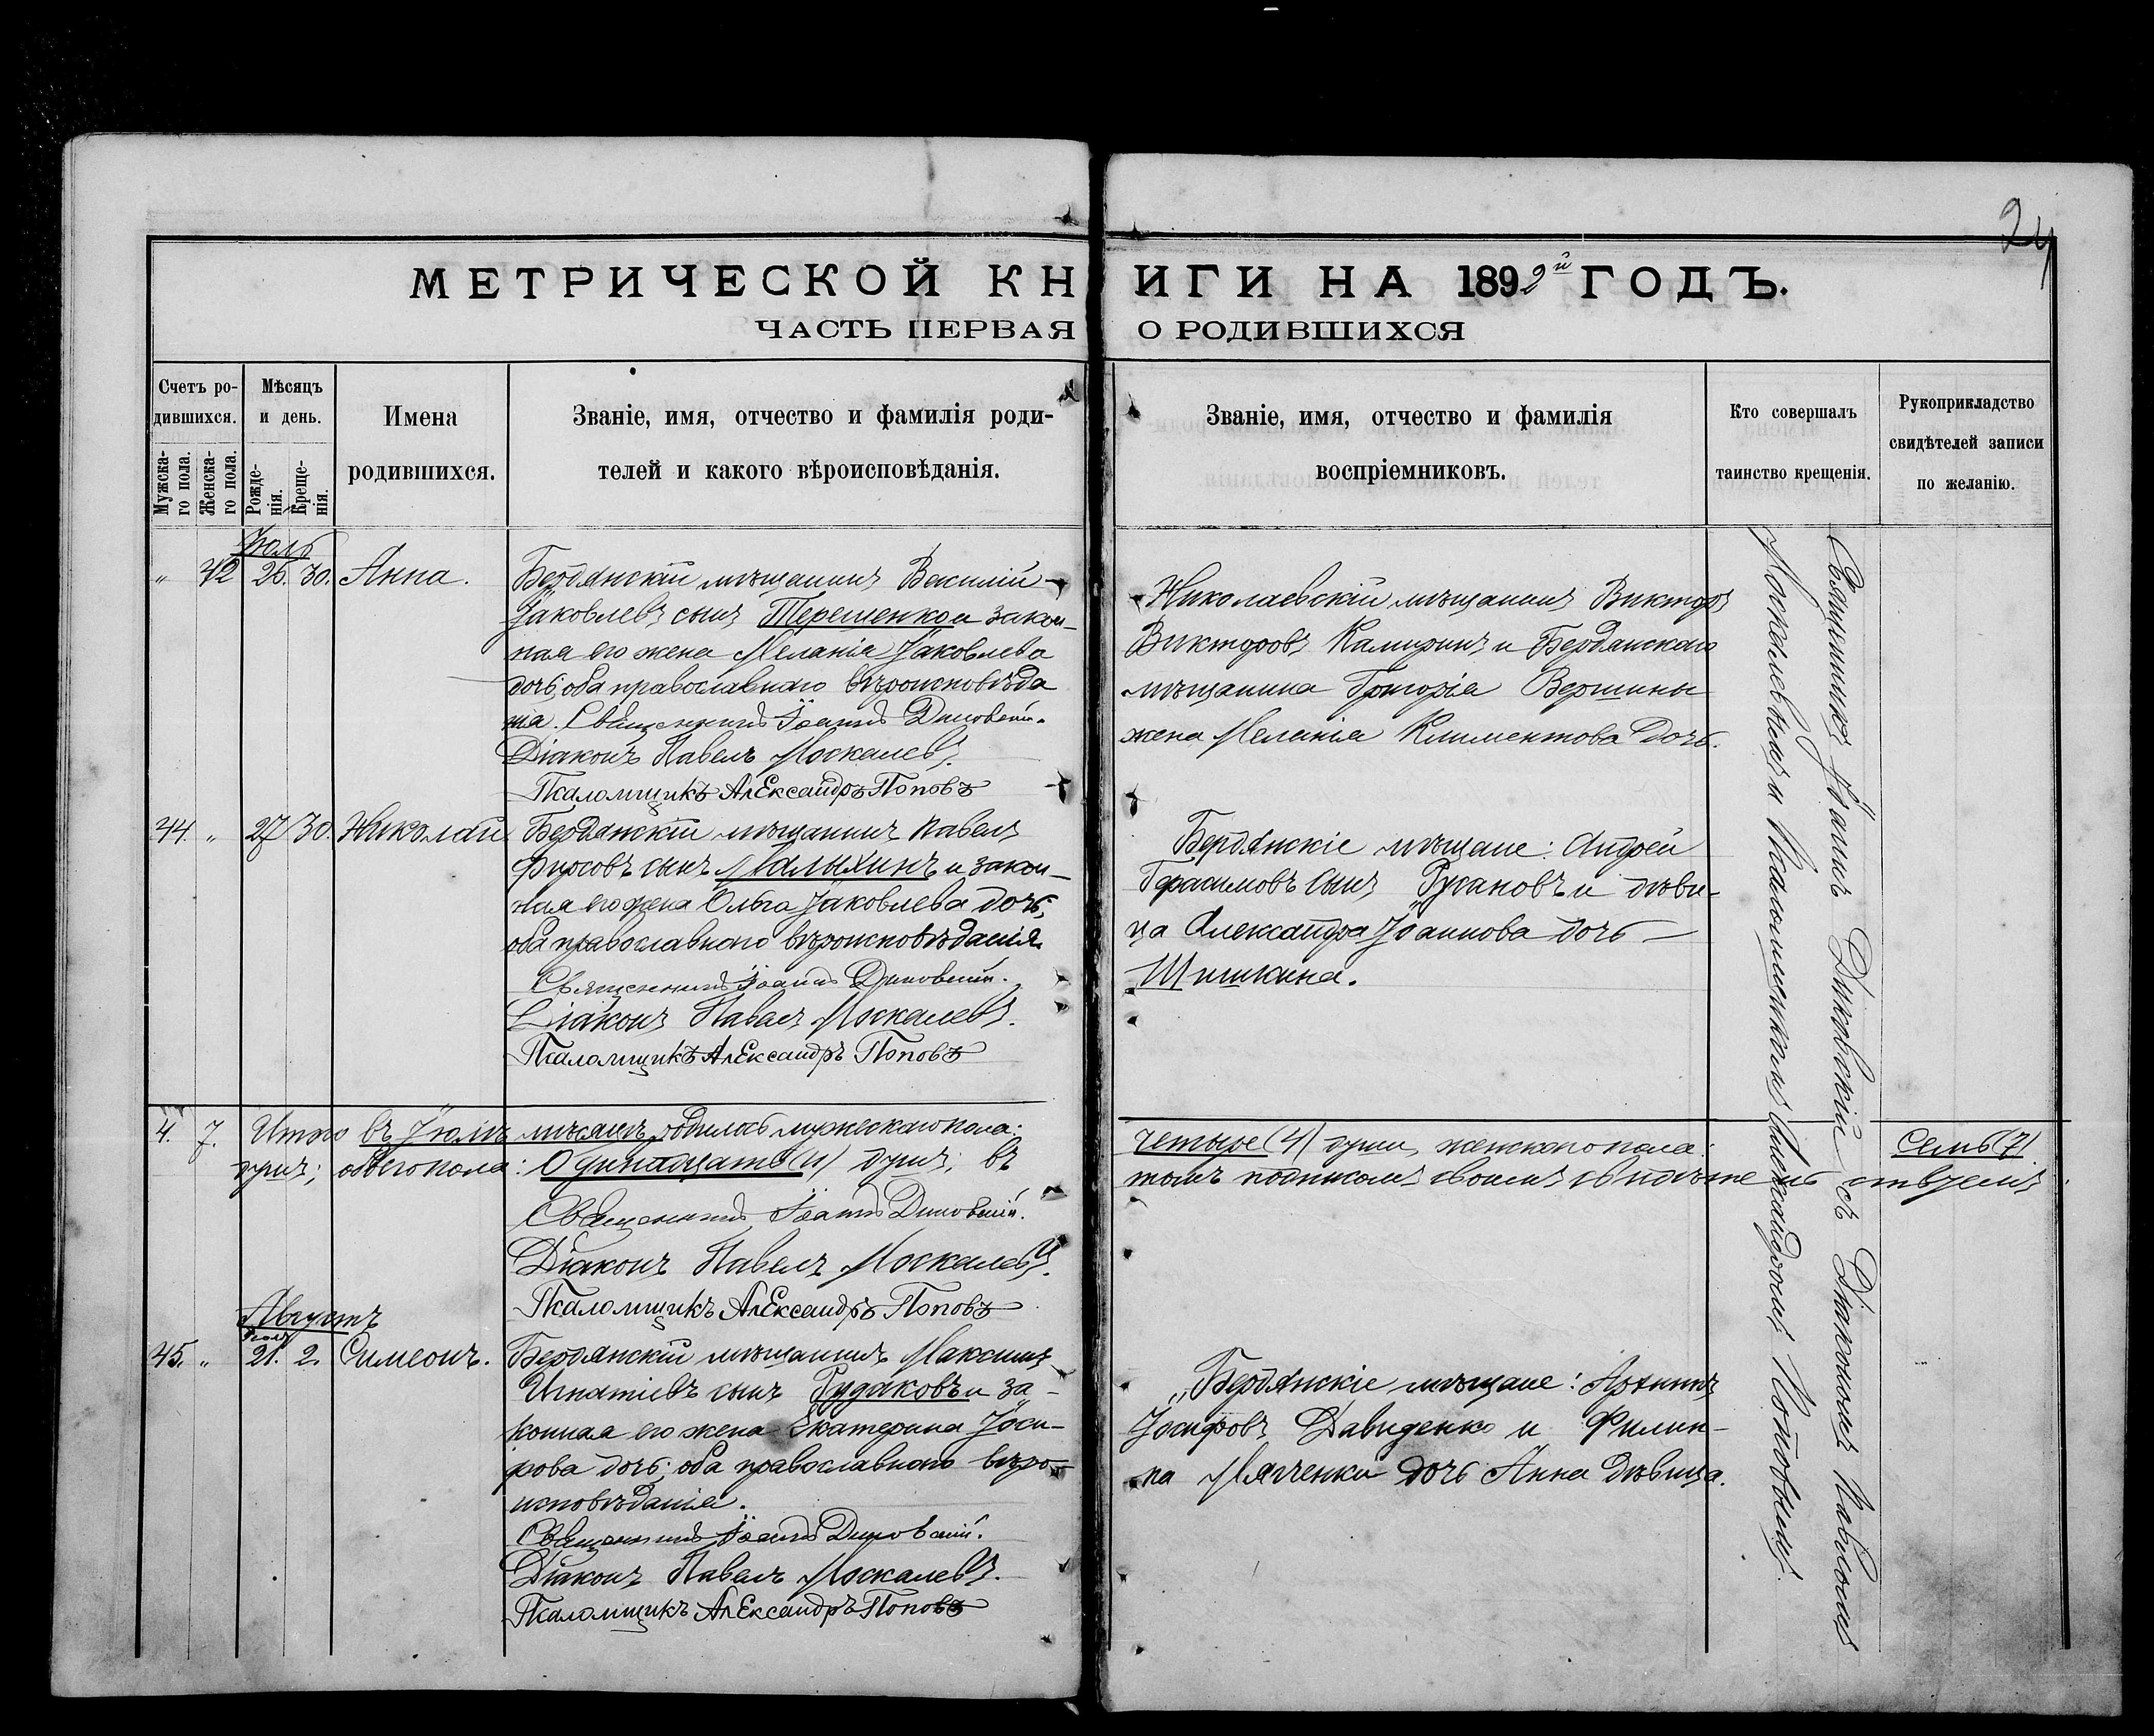 24
МЕТРИЧЕСКОЙ КНИГИ НА 1892й ГОДЪ.
ЧАСТЬ ПЕРВАЯ О РОДИВШИХСЯ
Счетъ ро-
дившихся.
Мужска-
го пола.
Женска-
го пола.
Мѣсяцъ
и день.
Рожде-
нія.
Креще-
нія.
Имена
родившихся.
Званіе, имя, отчество и фамилія роди-
телей и какого вѣроисповѣданія.
Званіе, имя, отчество и фамилія
воспріемниковъ.
Кто совершалъ
таинство крещенія.
Рукоприкладство
свидѣтелей записи
по желанію.
Іюль
" 42 26. 30. Анна.
Бердянскій мѣщанинъ Василій
Іаковлевъ сынъ Терещенко и закон-
ная его жена Меланія Іаковлева
дочь, оба православнаго вѣроисповѣда
нія. Священникъ Іоаннъ
Діаконъ Павелъ Москалевъ.
Псаломщикъ Александръ Поповъ
Николаевскій мѣщанинъ Викторъ
Викторовъ и Бердянскаго
мѣщанина Григорія Вершины
жена Меланія Климентова дочь.
44. " 27 30. Николай
Бердянскій мѣщанинъ Павелъ
Фирсовъ сынъ Малыхинъ и закон-
ная его жена Ольга Іаковлева дочь,
оба православнаго вѣроисповѣданія.
Священникъ Іоаннъ
Діаконъ Павелъ Москалевъ.
Псаломщикъ Александръ Поповъ
Бердянскіе мѣщане: Андрей
Герасимовъ сынъ Русановъ и дѣви-
ца Александра Іоаннова дочь
Шишкина.
4. 7. Итого въ Іюлѣ мѣсяцѣ родилось мужескаго пола: четыре (4) души, женскаго пола: семь (7)
душъ; обоего пола: Одинадцать (11) душъ; въ томъ подписомъ своимъ свидѣтельствуемъ.
Священникъ Іоаннъ
Діаконъ Павелъ Москалевъ.
Псаломщикъ Александръ Поповъ
Августъ
Іюля
45. " 21. 2. Симеонъ.
Бердянскій мѣщанинъ Максимъ
Игнатіевъ сынъ Рудаковъ и за-
конная его жена Екатерина Іоси-
фова дочь; оба православнаго вѣро-
исповѣданія.
Священникъ Іоаннъ
Діаконъ Павелъ Москалевъ.
Псаломщикъ Александръ Поповъ
Бердянскіе мѣщане: Архипъ
Іосифовъ Давиденко и Филип-
па дочь Анна дѣвица.
Священникъ Іоаннъ съ Діакономъ Павломъ
Москалевымъ и Псаломщикомъ Александромъ Поповымъ.